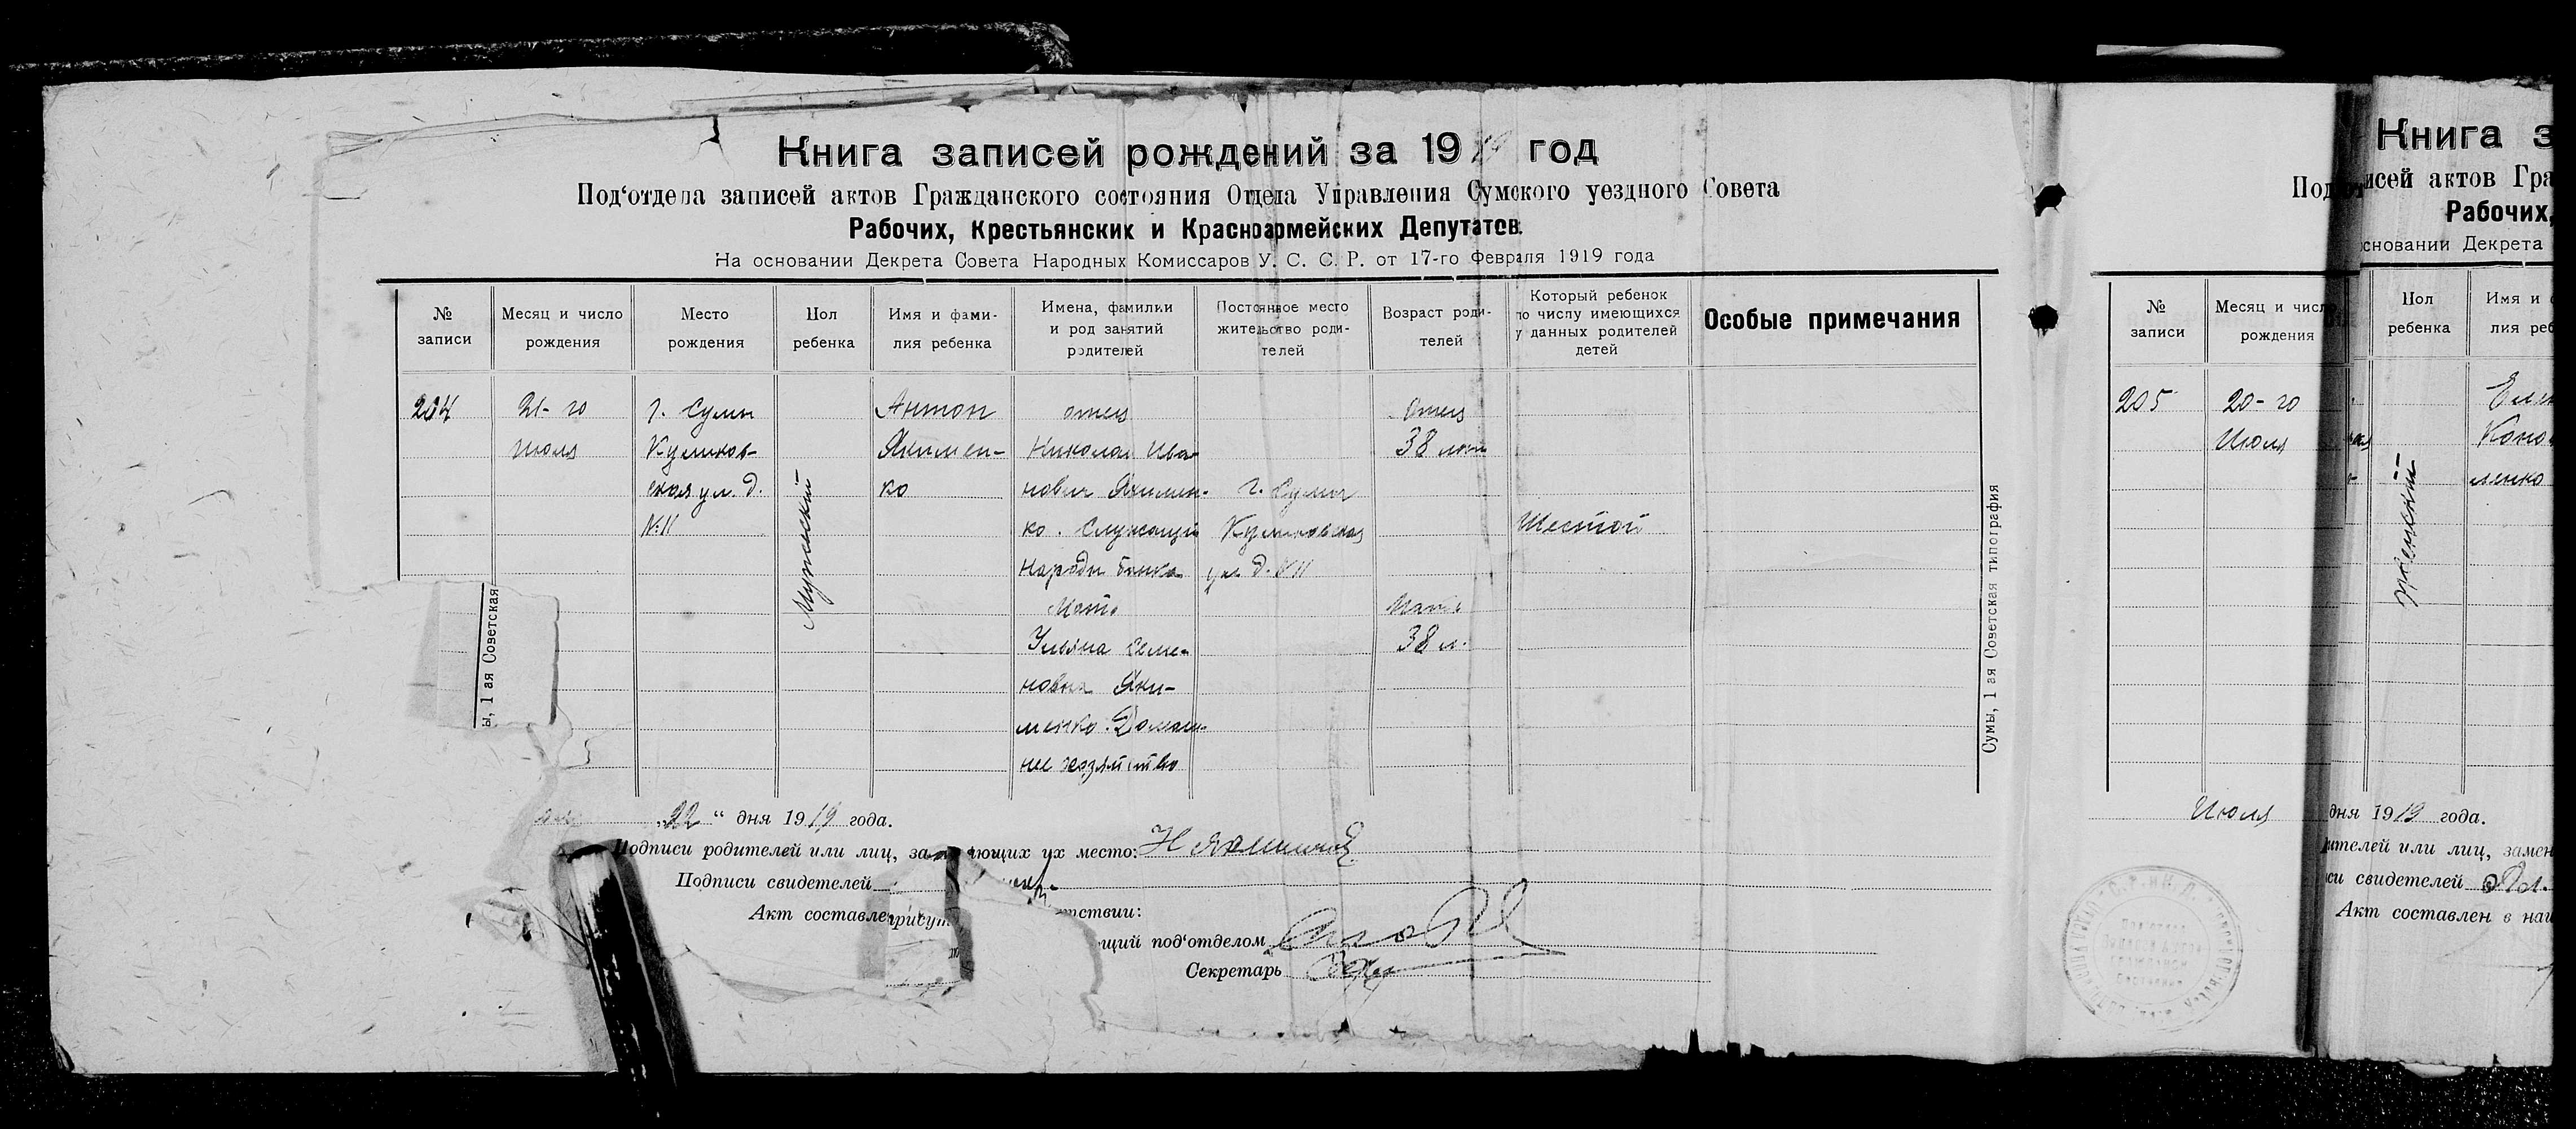 Книга записей рождений за 1919 год
Под‘отдела записей актов Гражданского состояния Отдела Управления Сумского уездного Совета
Рабочих, Крестьянских и Красноармейских Депутатов.
На основании Декрета Совета Народных Комиссаров У. С. С. Р. от 17-го Февраля 1919 года
№ записи
Месяц и число рождения
Место рождения
Пол ребенка
Имя и фами-
лия ребенка
Имена, фамилии
и род занятий
родителей
Постоянное место
жительство роди-
телей
Возраст роди-
телей
Который ребенок
по числу имеющихся
у данных родителей
детей
Особые примечания
204
21-го
Июля
г. Сумы
Куликов-
ская ул. д.
№ 11
Мужеский
Антон
Якимен-
ко
отец
Николай Ива-
нович Якимен-
ко. Служащий
народн банка
Мать
Ульяна Семе-
новна Яки-
менко. Домаш-
нее хозяйство
г. Сумы
Куликовская
ул. д. № 11
Отец
38 лет
Мать
38 л.
Шестой
Сумы, 1 ая Советская типография
ы, 1 ая Советская
„22“ дня 1919 года.
Подписи родителей или лиц, за ющих их место:
Подписи свидетелей
Акт составле
присут
тствии:
ющий под‘отделом
Секретарь
Книга з
исей актов Гра
Рабочих,
основании Декрета
№ записи
Месяц и число
рождения
Пол
ребенка
Имя и
лия реб
205
20-го
Июля
женский
Коно
ленко
Июля
дня 1919 года.
ителей или лиц, замен
си свидетелей
Акт составлен в наш